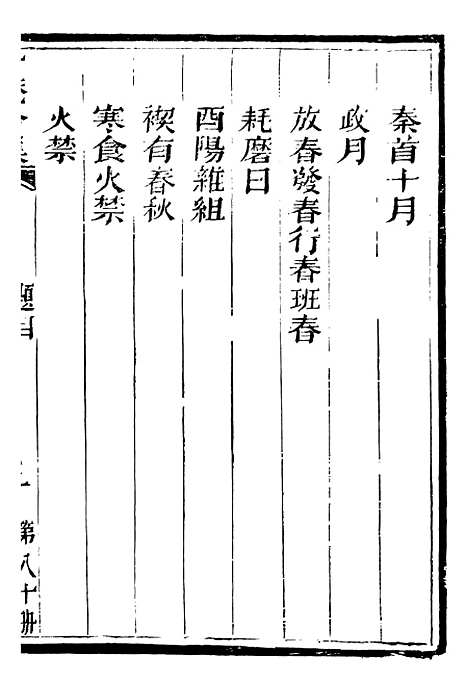 秦首十月
政月
放春發春行春班春
耗磨日
酉陽雜組
禊有春秋
寒食火禁
火禁
題目
第八十册